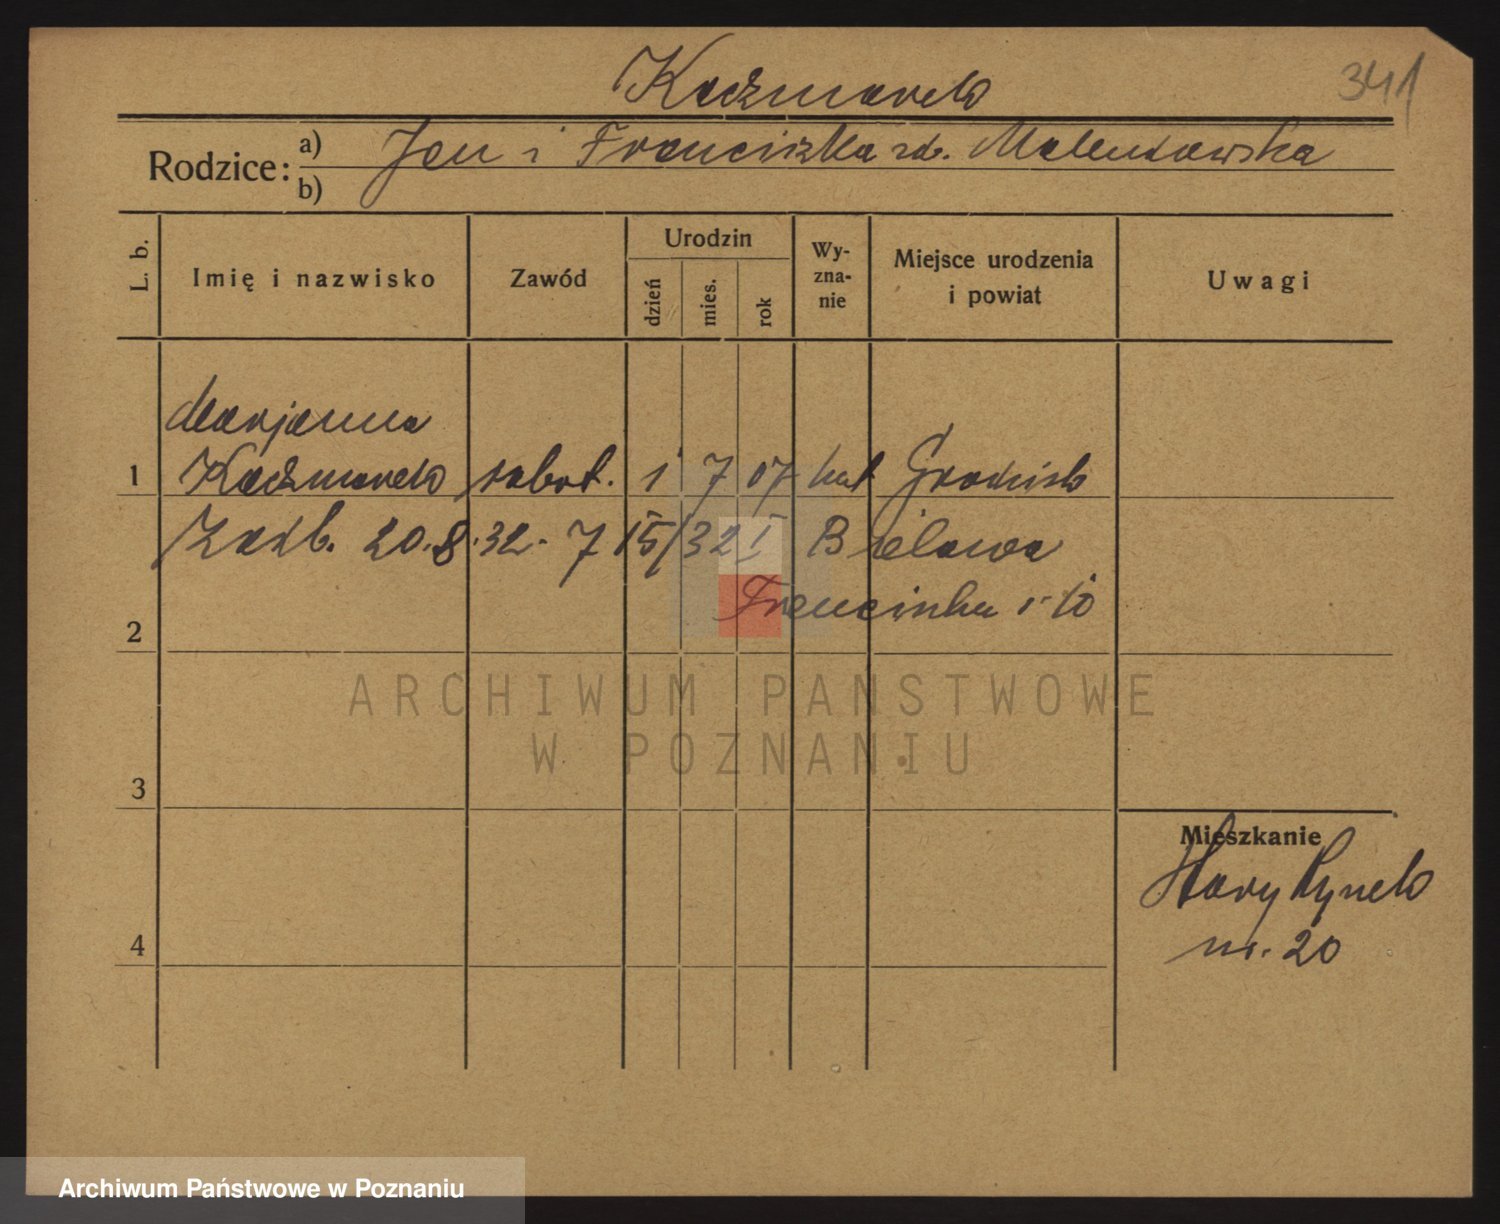 Kaczmarek
341
Rodzice: a) Jan i Franciszka zd.
b)
L. b.
Imię i nazwisko
Zawód
Urodzin
dzień
mies.
rok
Wy-
zna-
nie
Miejsce urodzenia
i powiat
Uwagi
Marjanna
1 Kaczmarek robot. 1 7 07 kat Grodzisk
20.8.32. 7 15/32 I Bielawa
2
3
4
Mieszkanie
Stary Rynek
nr. 20
ARCHIWUM PAŃSTWOWE
W POZNANIU
Archiwum Państwowe w Poznaniu